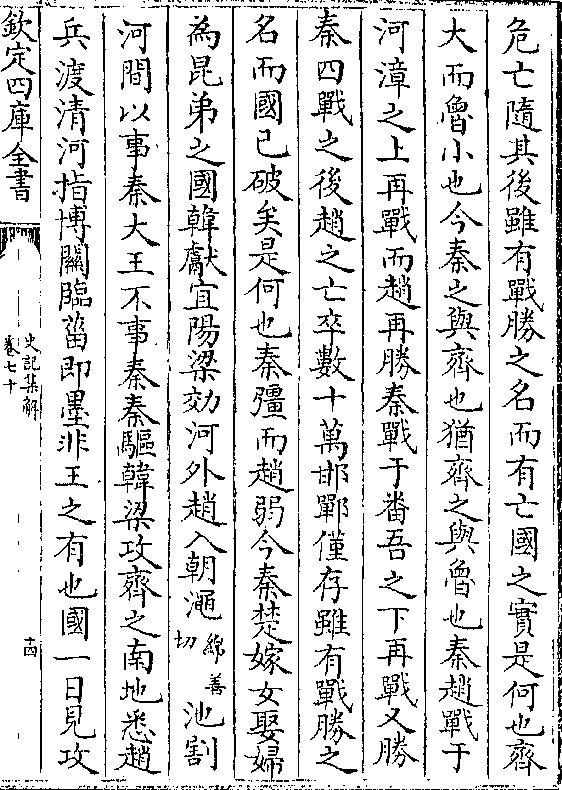 危亡隨其後雖有戰勝之名而有亡國之實是何也齊
大而魯小也今秦之與齊也猶齊之與魯也秦趙戰于
河漳之上再戰而趙再勝秦戰于番吾之下再戰又勝
秦四戰之後趙之亡卒數十萬邯鄲僅存雖有戰勝之
名而國已破矣是何也秦彊而趙弱今秦楚嫁女娶婦
為昆弟之國韓獻宜陽梁効河外趙入朝澠綿善切池割
河間以事秦大王不事秦秦驅韓梁攻齊之南地悉趙
兵渡清河指博關臨菑即墨非王之有也國一日見攻
欽定四庫全書
史記集解
卷七十
十四